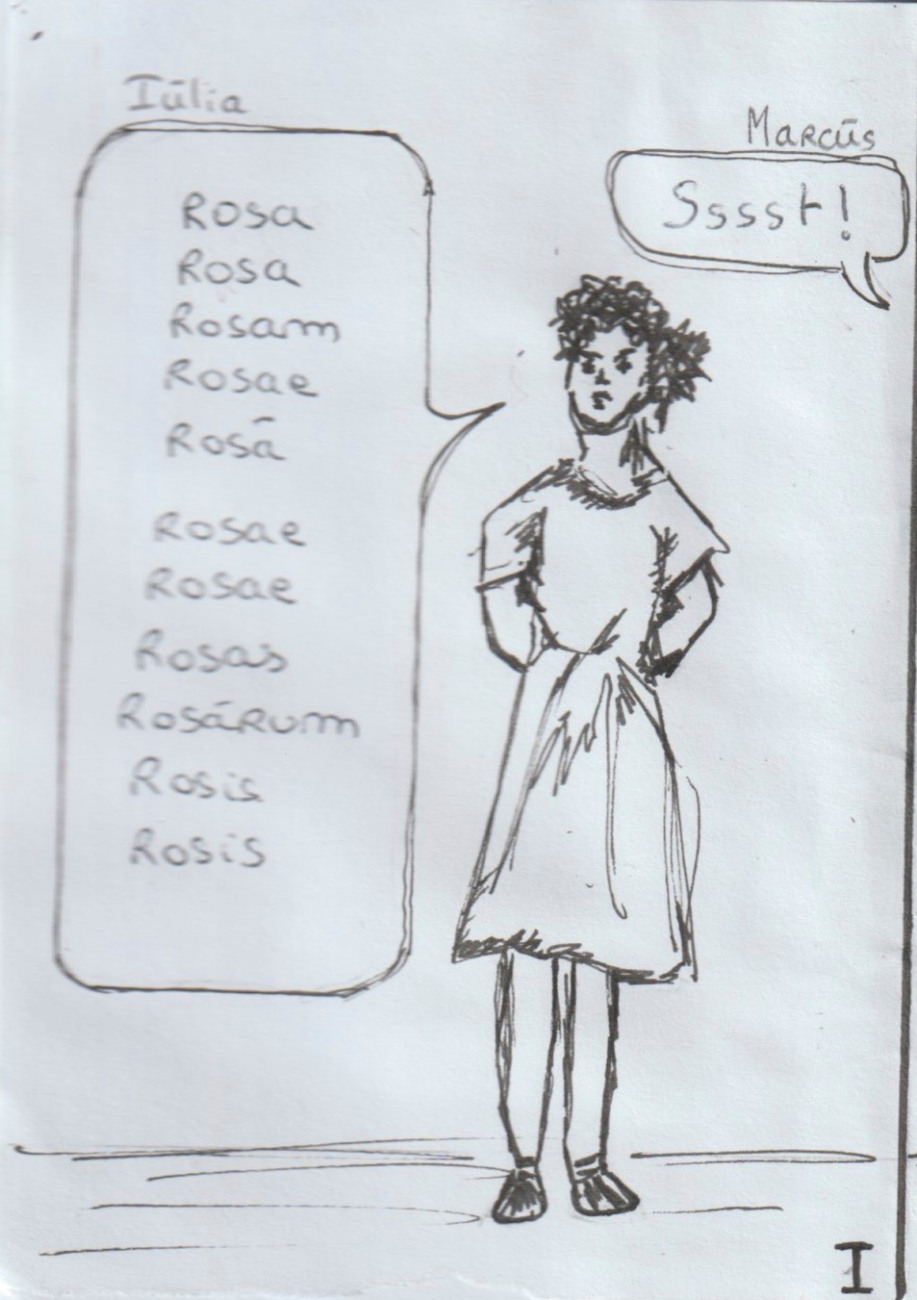 Iūlia
Rosa
Rosa
Rosam
Rosae
Rosā
Rosae
Rosae
Rosas
Rosārum
Rosis
Rosis
Marcūs
Sssst!
I